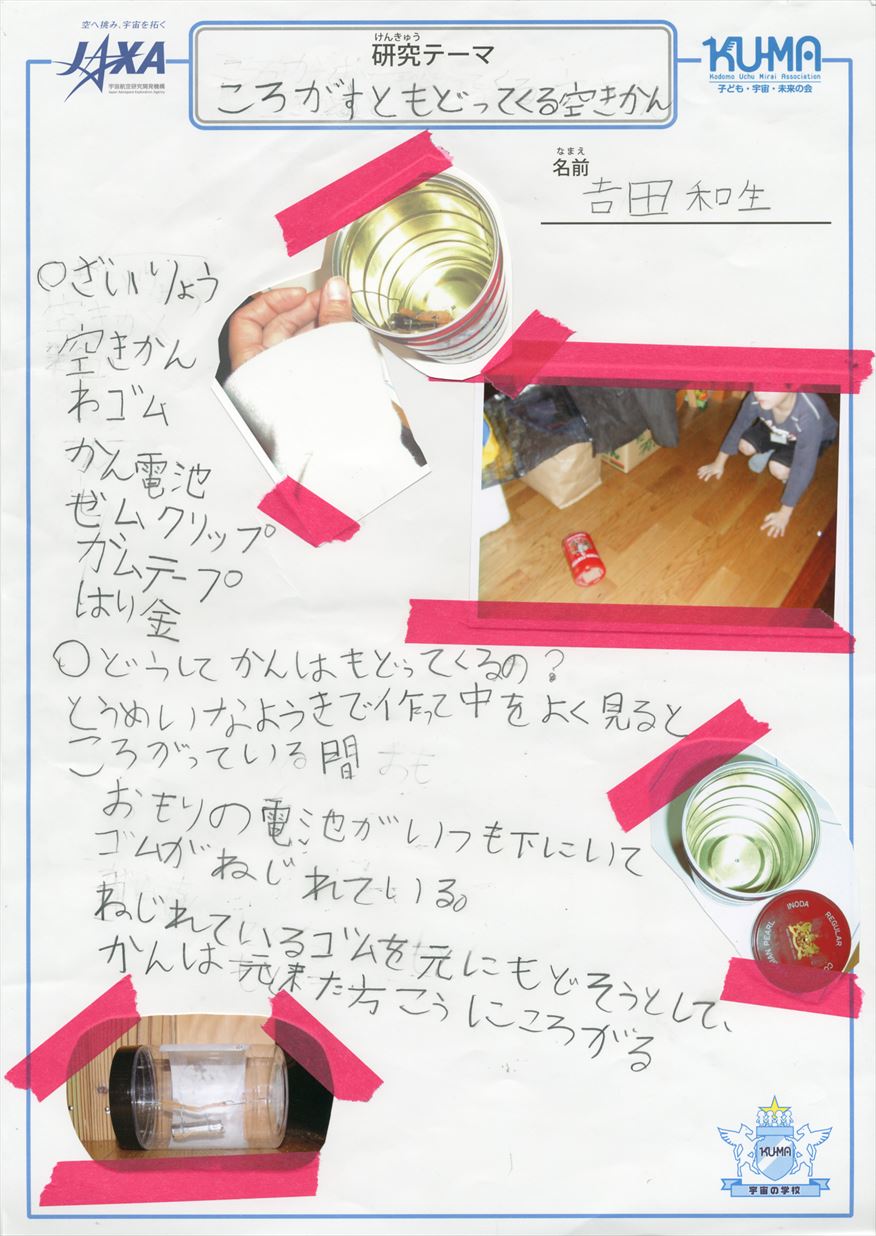 空へ挑み、宇宙を拓く
JAXA
宇宙航空研究開発機構
Japan Aerospace Exploration Agency
けんきゅう
研究テーマ
ころがすともどってくる空きかん
KU-MA
Kodomo Uchu Mirai Association
子ども・宇宙・未来の会
なまえ
名前
吉田和生
○ざいりょう
空きかん
わゴム
かん電池
ゼムクリップ
ガムテープ
はり金
○どうしてかんはもどってくるの?
とうめいなようきで作って中をよく見ると
ころがっている間
おもりの電池がいつも下にいて
ゴムがねじれている。
ねじれているゴムを元にもどそうとして、
かんは元来た方こうにころがる
INODA
REGULAR
PEARL
KU-MA
宇宙の学校